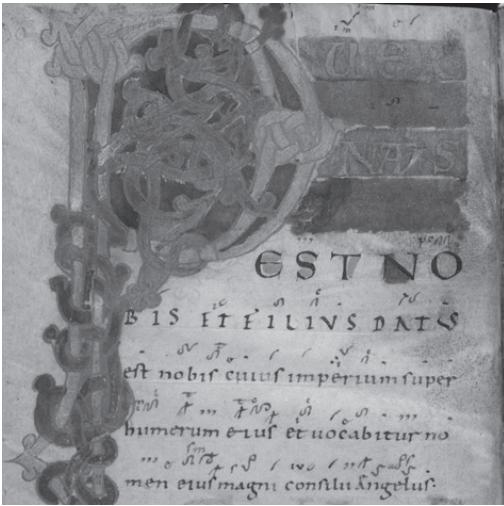 PUER
NATUS
EST NO
BIS ET FILIVS DATVS
est nobis cuius imperium super
humerum eius et uocabitur no
men eius magni consilii angelus: